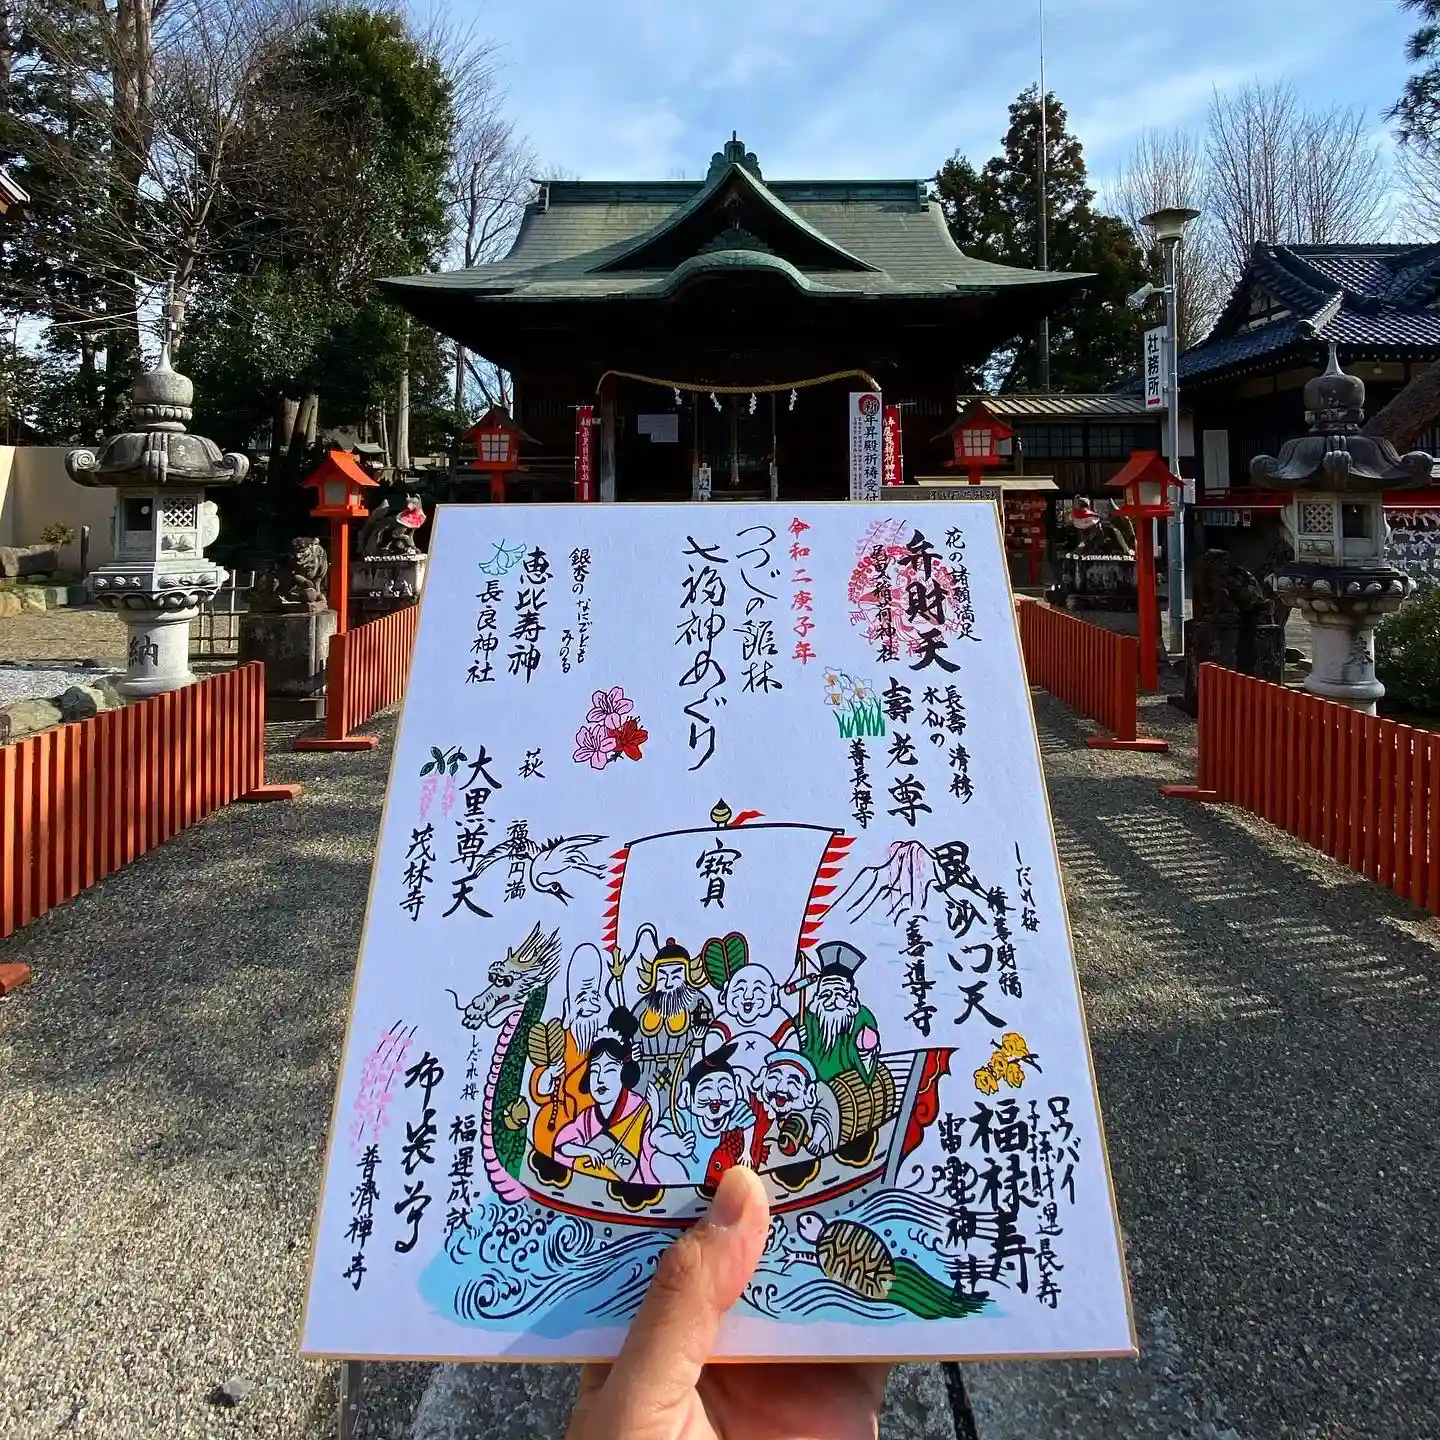 社務所
新年昇殿祈祷受付
尾曳稲荷神社
納
令和二庚子年
つつじの館林
七福神めぐり
花の諸願満足
弁財天
尾曳稲荷神社
長壽 清稔
水仙の
壽老尊
善長禅寺
しだれ梅
積善財福
毘沙门天
善導寺
ロウバイ
子孫財運長寿
福禄寿
雷電神社
銀杏の なにごとも
みのる
恵比寿神
長良神社
萩
福徳円満
大黒尊天
茂林寺
しだれ桜
福運成就
布袋尊
普濟禅寺
寶